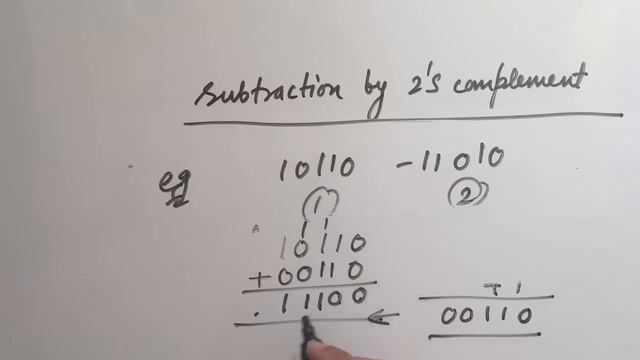 subtraction by 2's complement
eg 10110 - 11010
1 2
1 1
10110
+00110
11100
+ 1
00110